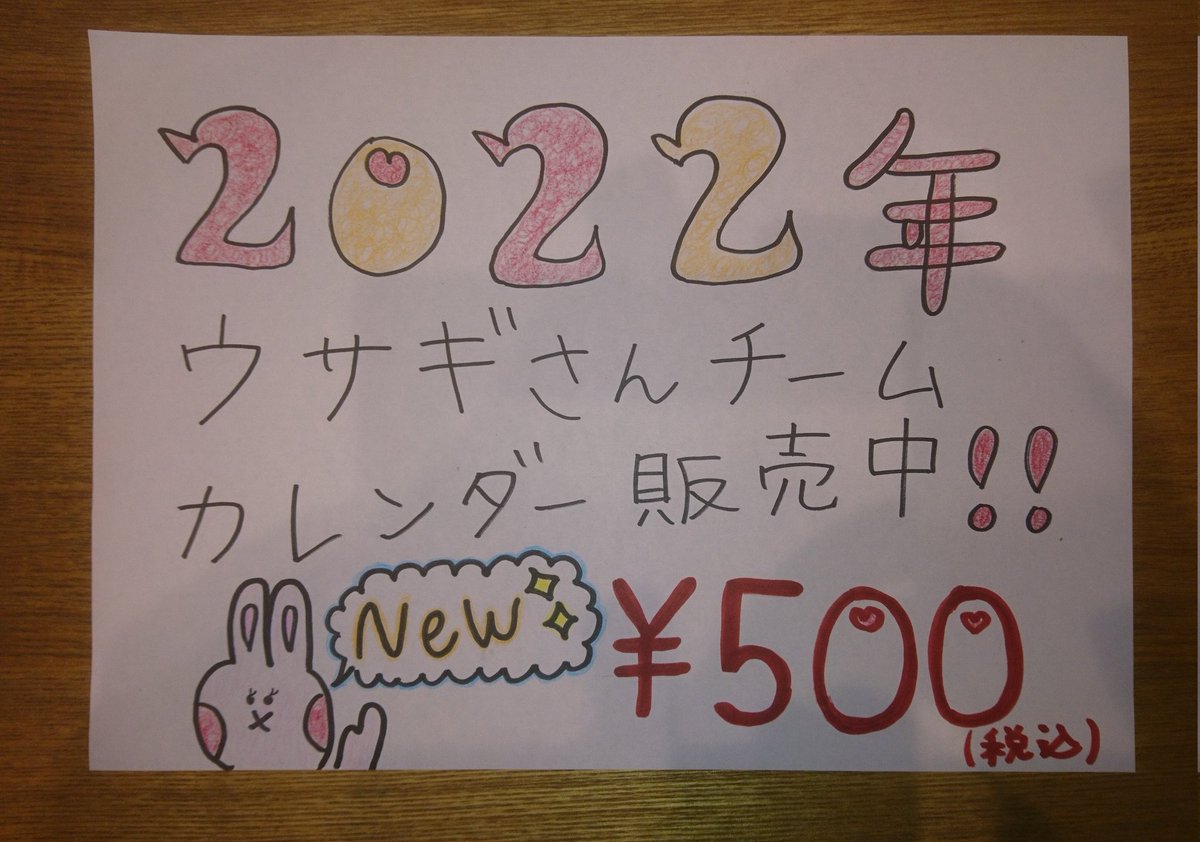 2022年
ウサギさんチーム
カレンダー販売中!!
New
¥500
(税込)